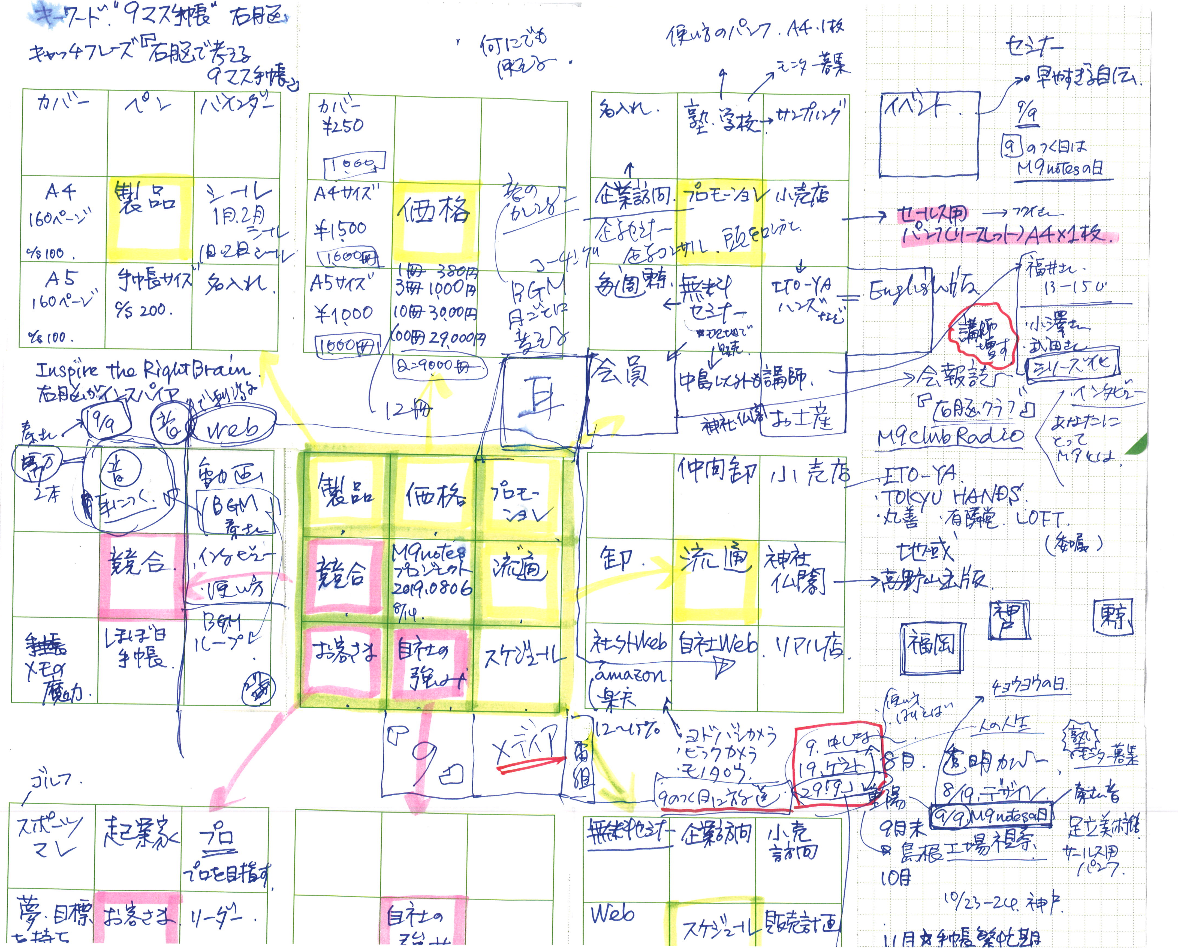 キーワード."9マス手帳" 右脳
キャッチフレーズ『右脳で考える
9マス手帳』
何にでも
使える.
使い方のパンフ.A4.1枚
モニター募集
セミナー
早やすぎる自伝
9/9
9のつく日は
M9notesの日
イベント
カバー
ペン
バインダー
A4
160ページ
%100.
製品
シール
1月.2月
シール
1日.2日シール
A5
160ページ
%100.
手帳サイズ
%200.
名入れ.
カバー
¥250
1000
A4サイズ
¥1,500
1000冊
価格
音の
カレンダー
コーチング
A5サイズ
¥1,000
1000冊
1冊 380円
3冊 1,000円
10冊 3,000円
100冊 29,000円
2=9000冊
12冊
BGM
月ごとに
変える
名入れ.
塾.学校
サンプリング
企業訪問.
企業セミナー
企業コンサル
プロモーション
小売店
毎週東京
無料
セミナー
ITO-YA
ハンズなど
会員
中島以外も講師.
神社仏閣
お土産
セールス用
パンフ(リーフレット)A4×1枚.
English版
福井さん
13-15
小澤さん
武田さん
シリーズ化
講師
増す
会報誌
『右脳クラブ』
M9clubRadio
インタビュー
あなたに
とって
M9とは.
Inspire the Right Brain.
右脳がインスパイア
9/9
音
web
耳
音
耳につく.
動画
BGM
インタビュー
・使い方
BGM
ループ
競合.
手帳
メモの
魔力.
ほぼ日
手帳.
製品
価格
プロモー
ションレ
競合
M9notes
プロジェクト
2019.0806
8/14.
流通
お客さま
自社の
強み
スケジュール
メディア
番組
仲間卸
小売店
卸.
流通
神社
仏閣
社外Web
自社Web.
リアル店
amazon.
楽天
12~15%
・ヨドバシカメラ
・ビックカメラ
・モノタロウ
9のつく日に放送
ITO-YA
・TOKYU HANDS.
・丸善 ・有隣堂 LOFT.
(委嘱)
地域
高野山出版
神戸
東京
福岡
チョウヨウの日.
一人の人生
19.ゲスト
8月.
透明カバー
8/19.デザイン
9/9 M9notesの日
塾
モニター募集
足立美術館
セールス用
パンフ
9月末
島根工場視察
10月
10/23-24.神戸
11月 手帳繁忙期
ゴルフ.
スポーツ
マン
起業家
プロ
プロを目指す.
夢.目標
を持ち
お客さま
リーダー.
自社の
強み
無料セミナー
企業訪問
小売
訪問
Web
スケジュール
販売計画